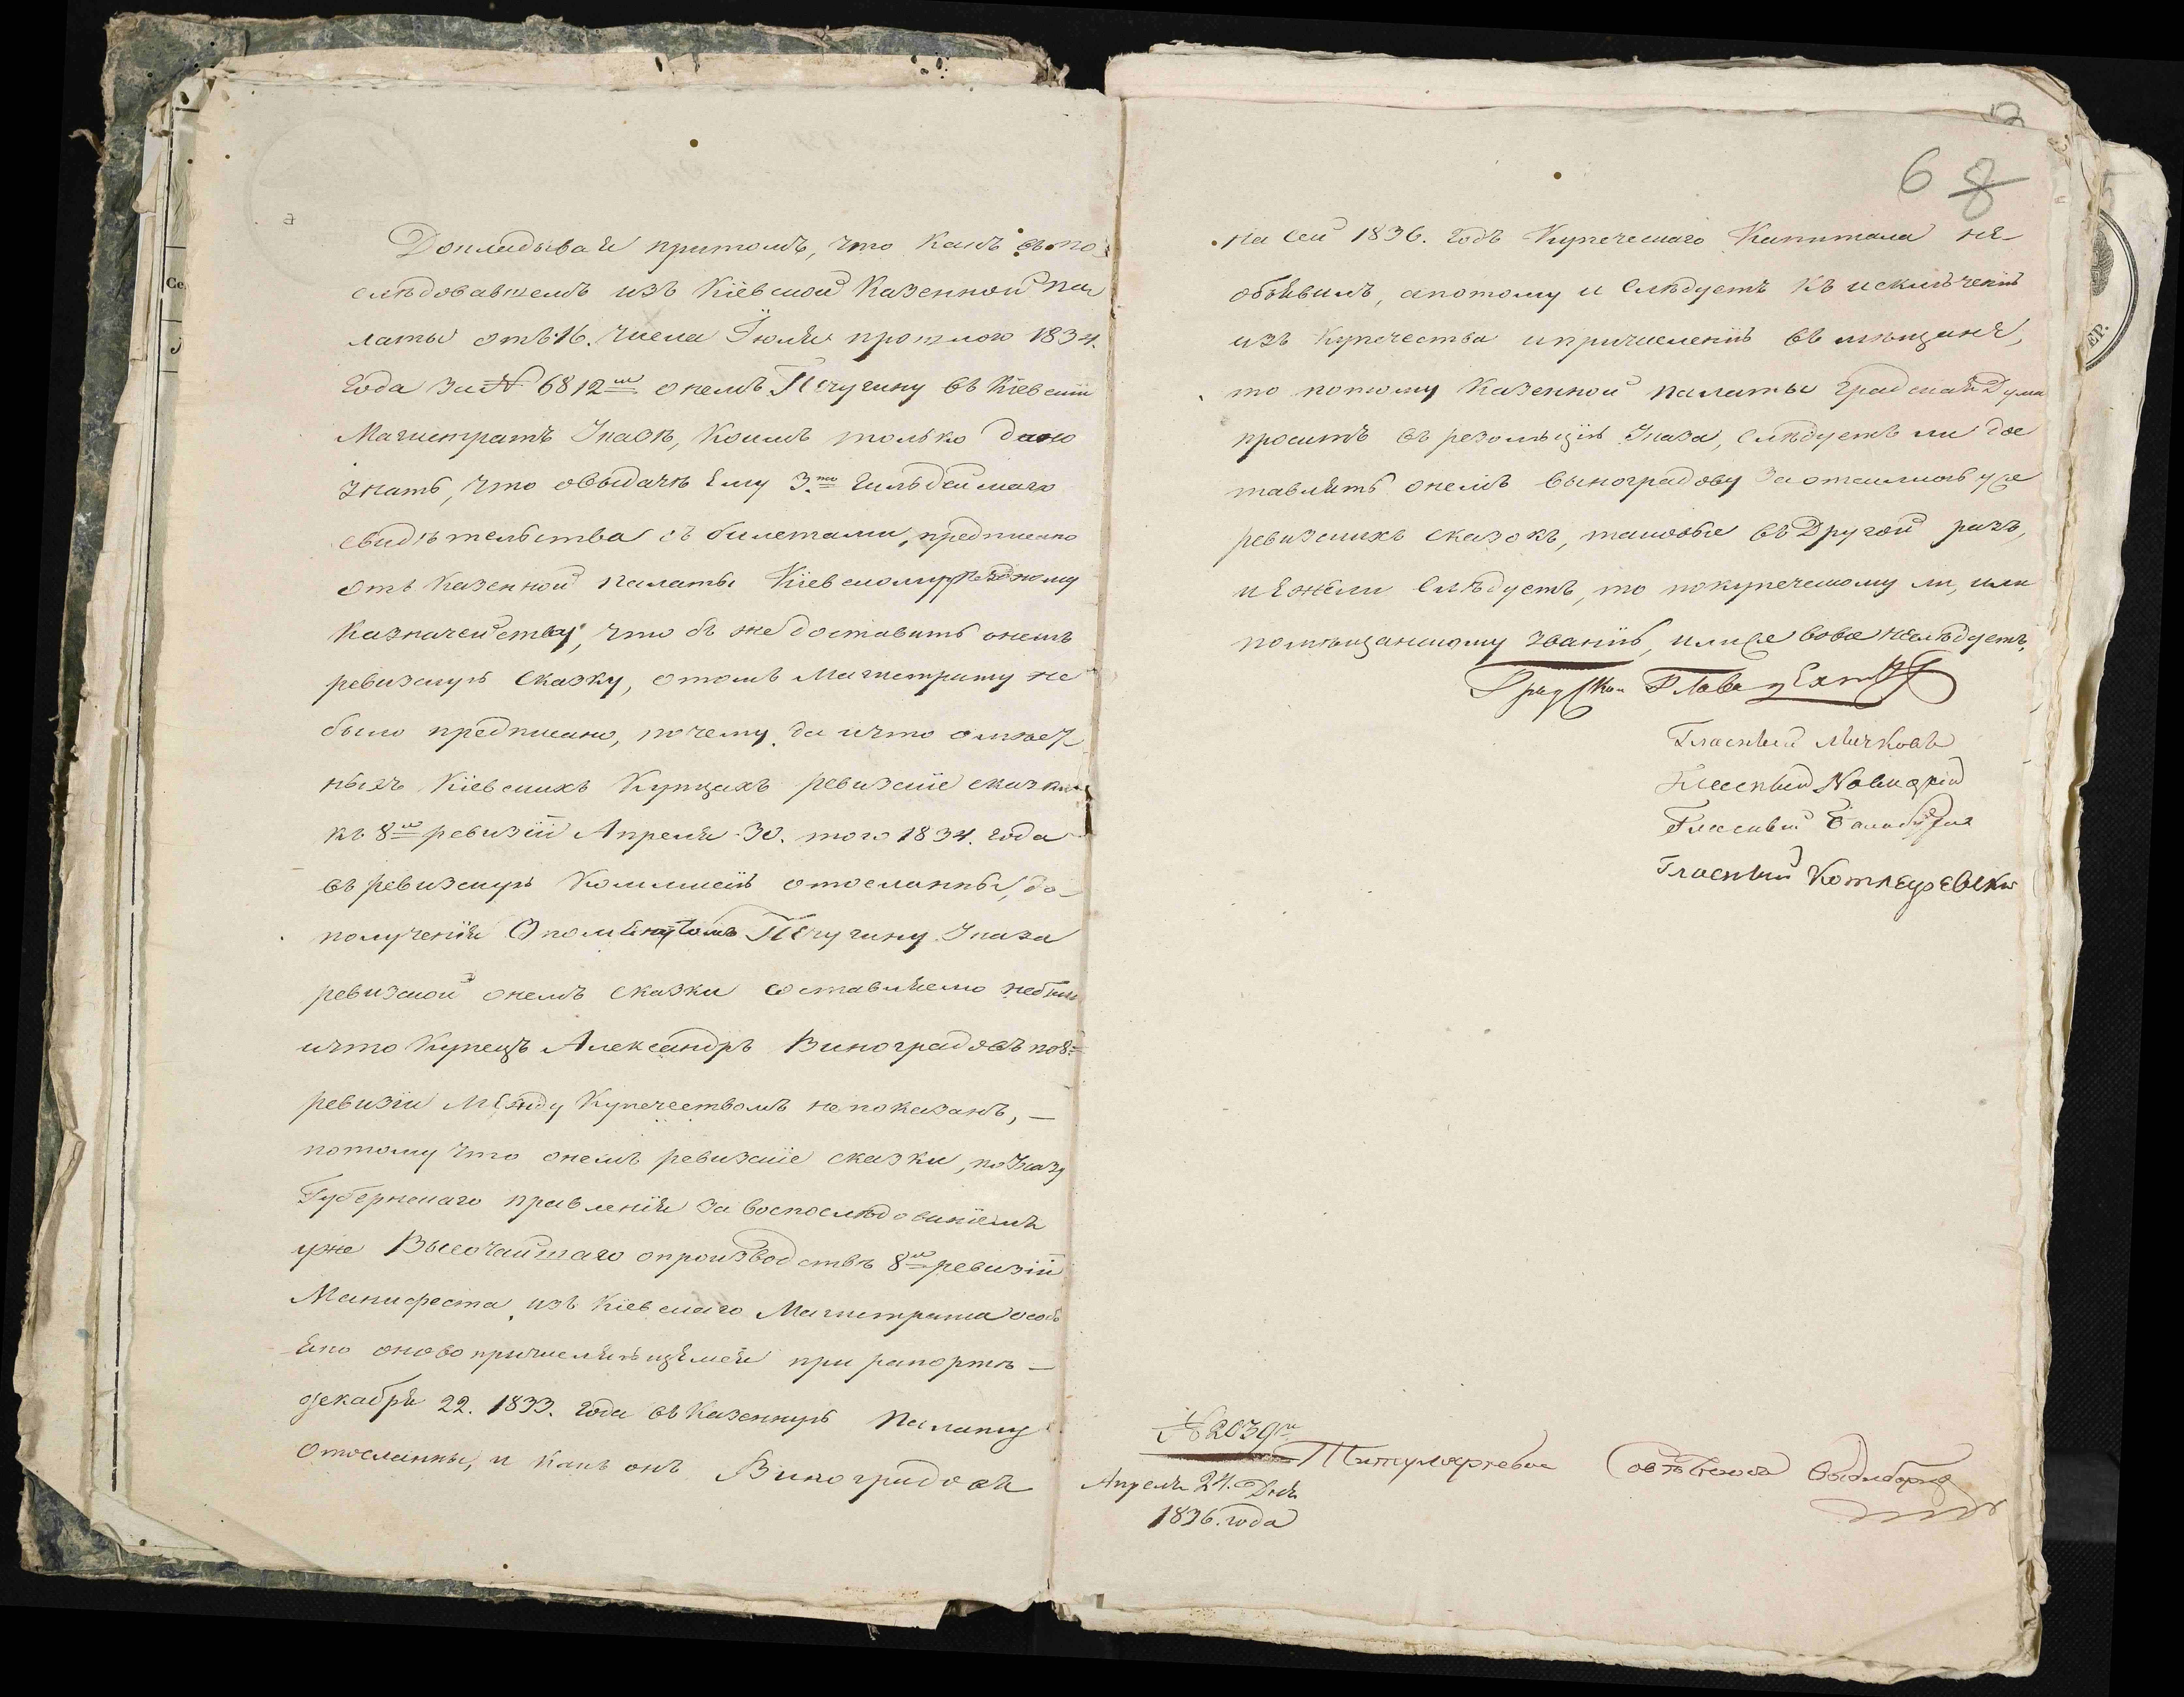 Докладывая притомъ, что какъ въ по
слѣдовавшемъ изъ Кіевской Казенной Па
латы отъ 16. числа Іюля прошлого 1834.
года за № 6812м онемъ Пичугину въ Кіевскій
Магистратъ Указѣ, коимъ только дано
знать, что овыдачѣ ему 3.то Гильдейского
свидѣтельства съ билетами, предписано
отъ Казенной Палаты Кіевскому уѣздному
Казначейству, что бъ же доставить онемъ
ревизкую сказку, отомъ Магистрату не
было предписано, почему, да ичто
Кіевскихъ Купцахъ ревизскіе сказки
къ 8й ревизіи Апреля 30. того 1834. года
въ ревизкую Коммисію отосланны, до
полученія Опомянутомъ Пичугину Указа
ревизкой онемъ сказки составляемо небыло
ичто Купецъ Александръ Виноградовъ по 8й
ревизіи между Купечествомъ непоказанъ, —
потому что онемъ ревизкіе сказки, поУказу
Губернскаго правленія за воспослѣдованіемъ
уже Высочайшаго опроизводствѣ 8й ревизіи
Манифеста, изъ Кіевскаго Магистрата особ
енно оновопричисляющемся при рапортѣ —
декабря 22. 1833. года въ Казенную Палату
Отосланны, и какъ онъ Виноградовъ
6 8
на сей 1836. годъ Купеческаго Капитала не-
объявилъ, апотому и слѣдуетъ къ исключенію
изъ Купечества ипричисленію въ мѣщане,
то потому Казенной Палаты градскаяДума
проситъ въ резолюцію Указа, слѣдуетъ ли дос
тавлять онемъ Виноградову
ревизкихъ сказокъ, таковые въ Другой разъ,
и ежели слѣдуетъ, то покупечецкому ли, или
помѣщанскому званію, или вовсе неслѣдуетъ,
Градской Глава
Гласный Мичковъ
Гласный Новицкій
Гласный
Гласный Котляревски
№ 2039м
Апреля 24. Дня
1836. года
Титулярневой Совѣтникъ